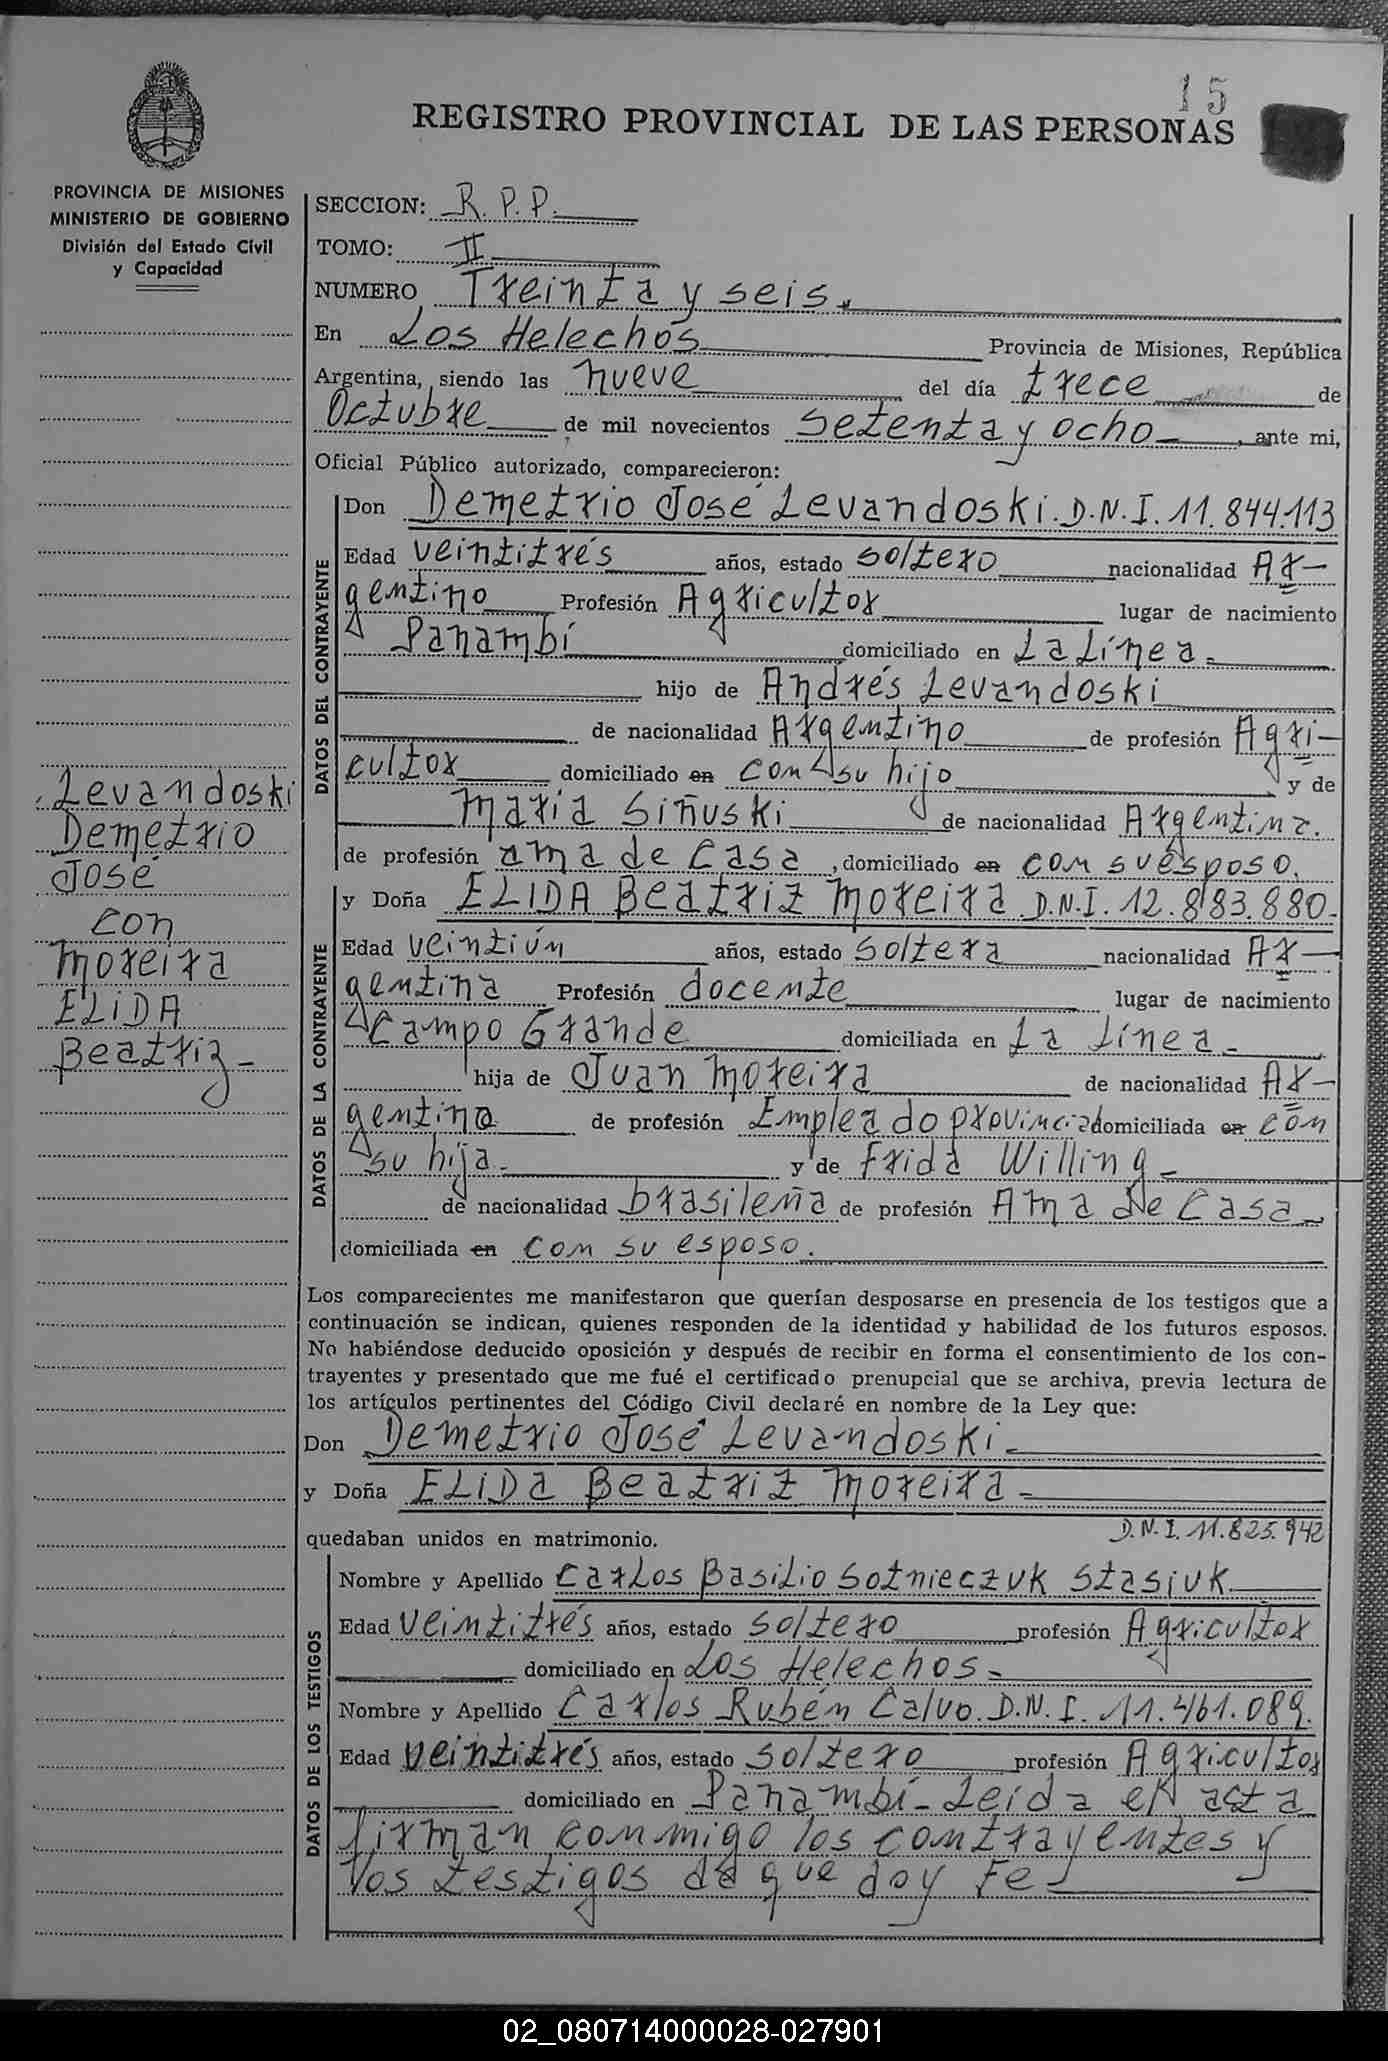 15
REGISTRO PROVINCIAL DE LAS PERSONAS
PROVINCIA DE MISIONES
MINISTERIO DE GOBIERNO
División del Estado Civil
y Capacidad
Levandoski
Demetrio
José
con
Moreira
ELIDA
Beatriz
SECCION: R. P. P.
TOMO: II
NUMERO Treinta y seis.
En Los Helechos Provincia de Misiones, República
Argentina, siendo las nueve del día trece de
Octubre de mil novecientos setenta y ocho, ante mi,
Oficial Público autorizado, comparecieron:
DATOS DEL CONTRAYENTE
Don Demetrio José Levandoski. D.N.I. 11.844.113
Edad veintitrés años, estado soltero nacionalidad Ar-
gentino Profesión Agricultor lugar de nacimiento
Panambí domiciliado en La Línea.
hijo de Andrés Levandoski
de nacionalidad Argentino de profesión Agri-
cultor domiciliado en con su hijo y de
María Siñuski de nacionalidad Argentina.
de profesión ama de casa, domiciliado en con su esposo.
DATOS DE LA CONTRAYENTE
y Doña ELIDA Beatriz Moreira D.N.I. 12.883.880-
Edad veintiún años, estado soltera nacionalidad Ar-
gentina Profesión docente lugar de nacimiento
Campo Grande domiciliada en La Línea-
hija de Juan Moreira de nacionalidad Ar-
gentino de profesión Empleado provincial domiciliada en con
su hija- y de Frida Willing-
de nacionalidad brasileña de profesión Ama de Casa
domiciliada en con su esposo.
Los comparecientes me manifestaron que querían desposarse en presencia de los testigos que a
continuación se indican, quienes responden de la identidad y habilidad de los futuros esposos.
No habiéndose deducido oposición y después de recibir en forma el consentimiento de los con-
trayentes y presentado que me fué el certificado prenupcial que se archiva, previa lectura de
los artículos pertinentes del Código Civil declaré en nombre de la Ley que:
Don Demetrio José Levandoski-
y Doña ELIDA Beatriz Moreira-
quedaban unidos en matrimonio. D.N.I. 11.825.942
DATOS DE LOS TESTIGOS
Nombre y Apellido Carlos Basilio Sotnieczuk Stasiuk
Edad veintitrés años, estado soltero profesión Agricultor
domiciliado en Los Helechos-
Nombre y Apellido Carlos Rubén Calvo. D.N.I. 11.461.089.
Edad veintitrés años, estado soltero profesión Agricultor
domiciliado en Panambí- Leída el acta
firman conmigo los contrayentes y
los testigos de que doy fe
02_080714000028-027901